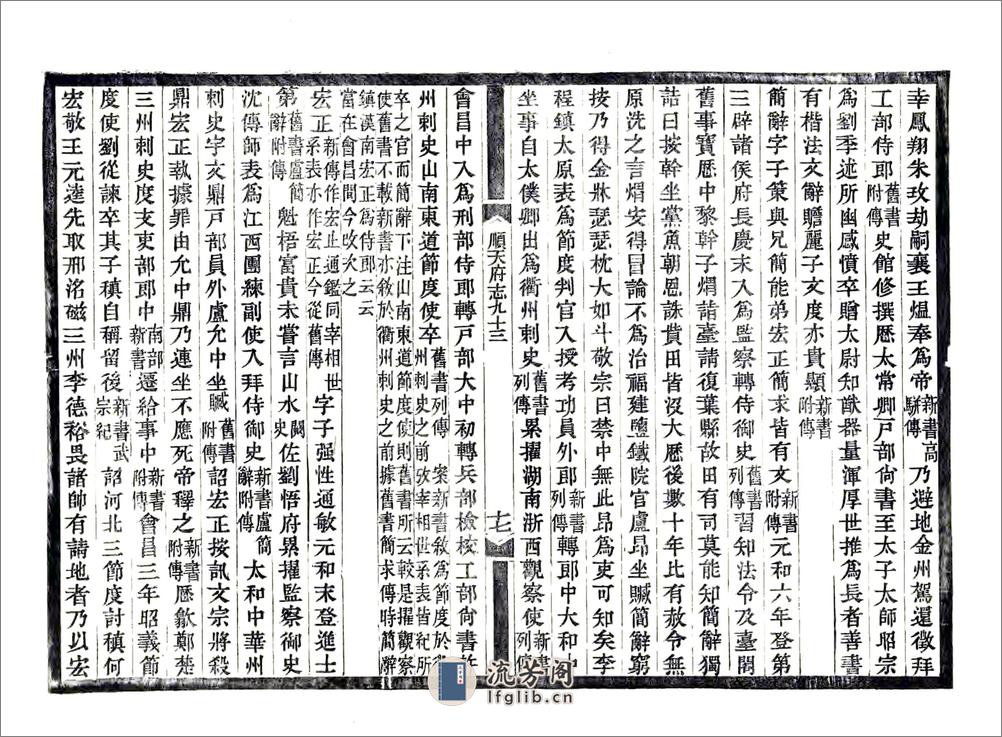 幸鳳翔朱玫劫嗣襄王熅奉爲帝新書高駢傳乃避地金州駕還徵拜
工部侍郎舊書附傳史館修撰歷太常卿戶部尚書至太子太師昭宗
爲劉季述所幽感憤卒贈太尉知猷器量渾厚世推爲長者善書
有楷法文辭贍麗子文度亦貴顯新書附傳
簡辭字子策與兄簡能弟宏正簡求皆有文新書附傳元和六年登第
三辟諸侯府長慶末入爲監察轉侍御史舊書列傳習知法令及臺閣
舊事寶歷中黎幹子煟詣臺請復葉縣故田有司莫能知簡辭獨
詰曰按幹坐黨魚朝恩誅貲田皆沒大歷後數十年比有赦令無
原洗之言煟安得冒論不爲治福建鹽鐵院官盧昂坐贓簡辭窮
按乃得金牀瑟瑟枕大如斗敬宗曰禁中無此昂爲吏可知矣李
程鎮太原表爲節度判官入授考功員外郎新書列傳轉郎中大和中
坐事自太僕卿出爲衢州刺史舊書列傳累擢湖南浙西觀察使新書列傳
順天府志九十三
會昌中入爲刑部侍郎轉戶部大中初轉兵部檢校工部尚書許
州刺史山南東道節度使卒舊書列傳 案新書敘爲節度於衢州刺史之前攷宰相世系表皆紀所
卒之官而簡辭下注山南東道節度使則舊書所云較是擢觀察使舊書不載新書亦敘於衢州刺史之前據舊書簡求傳時簡辭
鎮漢南宏正爲侍郎云云當在會昌間今改次之
宏正新傳作宏止通鑑同宰相世系表亦作宏正今從舊傳字子强性通敏元和末登進士
第舊書盧簡辭附傳魁梧富貴未嘗言山水闕史佐劉悟府累擢監察御史
沈傳師表爲江西團練副使入拜侍御史新書盧簡辭附傳太和中華州
刺史宇文鼎戶部員外盧允中坐贓舊書附傳詔宏正按訊文宗將殺
鼎宏正執據罪由允中鼎乃連坐不應死帝釋之新書附傳歷歙鄭楚
三州刺史度支吏部郎中南部新書遷給事中新書附傳會昌三年昭義節
度使劉從諫卒其子稹自稱留後新書武宗紀詔河北三節度討稹何
宏敬王元逵先取邢洺磁三州李德裕畏諸帥有請地者乃以宏
流芳阁
lfglib.cn